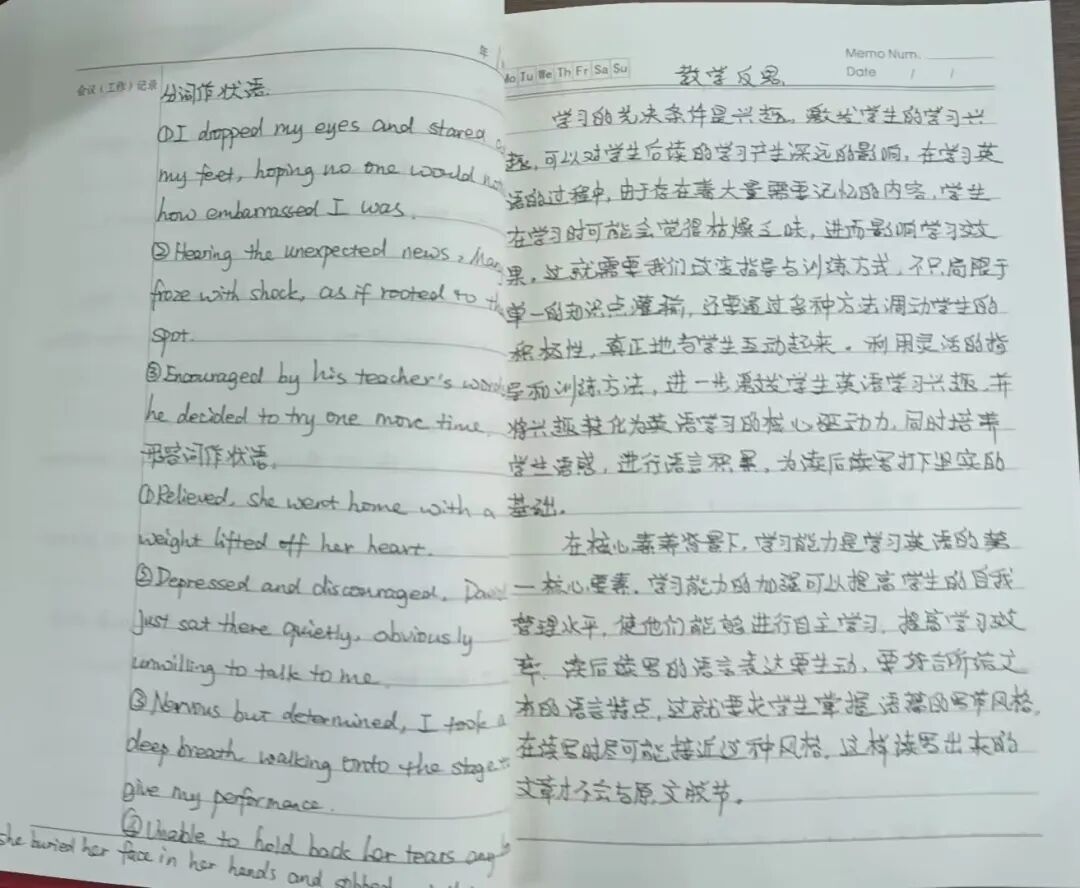 年
会议（工作）记录
分词作状语.
①I dropped my eyes and stared
my feet, hoping no one would
how embarrassed I was.
②Hearing the unexpected news,
froze with shock, as if rooted to
spot.
③Encouraged by his teacher's
he decided to try one more time.
形容词作状语.
①Relieved, she went home with a
weight lifted off her heart.
②Depressed and discouraged,
just sat there quietly, obviously
unwilling to talk to me
③Nervous but determined, I took a
deep breath, walking onto the stage
give my performance.
④Unable to hold back her tears
she buried her face in her hands and
Mo Tu We Th Fr Sa Su
Memo Num.
Date / /
教学反思.
学习的先决条件是兴趣，激发学生的学习兴
趣，可以对学生后续的学习产生深远的影响，在学习英
语的过程中，由于存在着大量需要记忆的内容，学生
在学习时可能会觉得枯燥乏味，进而影响学习效
果，这就需要我们改变指导与训练方式，不只局限于
单一的知识点灌输，还要通过多种方法调动学生的
积极性，真正地与学生互动起来。利用灵活的指
导和训练方法，进一步激发学生英语学习兴趣，并
将兴趣转化为英语学习的核心驱动力，同时培养
学生语感，进行语言积累，为读后续写打下坚实的
基础。
在核心素养背景下，学习能力是学习英语的第
一核心要素，学习能力的加强可以提高学生的自我
管理水平，使他们能够进行自主学习，提高学习效
率，读后续写的语言表达要生动，要符合所给文
本的语言特点，这就要求学生掌握语篇的写作风格，
在续写时尽可能接近这种风格，这样续写出来的
文章才不会与原文脱节。